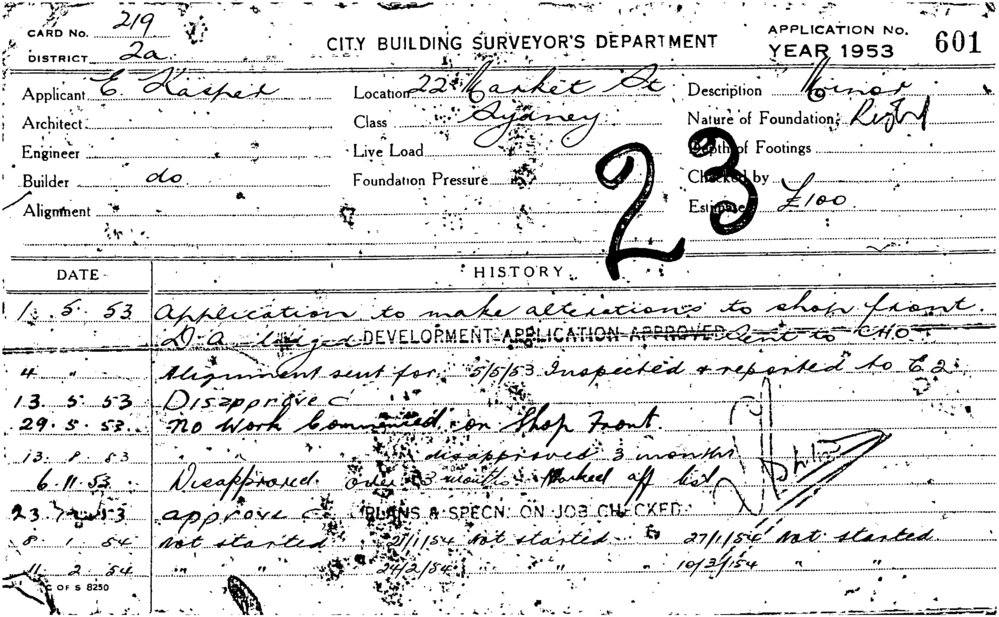 CARD No. 219
DISTRICT 2a
CITY BUILDING SURVEYOR'S DEPARTMENT
APPLICATION No.
YEAR 1953
601
Applicant E. Kasper
Location 22 Market St
Description Minor
Architect
Class Sydney
Nature of Foundation;
Engineer
Live Load
Depth of Footings
Builder do
Foundation Pressure
Checked by
Alignment
Estimate £100
23
DATE HISTORY
1. 5. 53 Application to make alterations to shop front.
D A lodged DEVELOPMENT APPLICATION APPROVED Sent to CHO
4 " Alignment sent for. 5/5/53 Inspected & reported to E2.
13. 5. 53 Disapproved
29. 5. 53. No Work Commenced on Shop Front.
13. 8. 53 " " " disapproved 3 months
6. 11. 53. Disapproved. over 3 months. Marked off list
23. 12. 53 approved PLANS & SPECN. ON JOB CHECKED
8. 1. 54 Not started 21/1/54 Not started 27/1/54 Not started.
11. 2. 54 " " 24/2/54 " " 10/3/54 " "
C OF S 8250